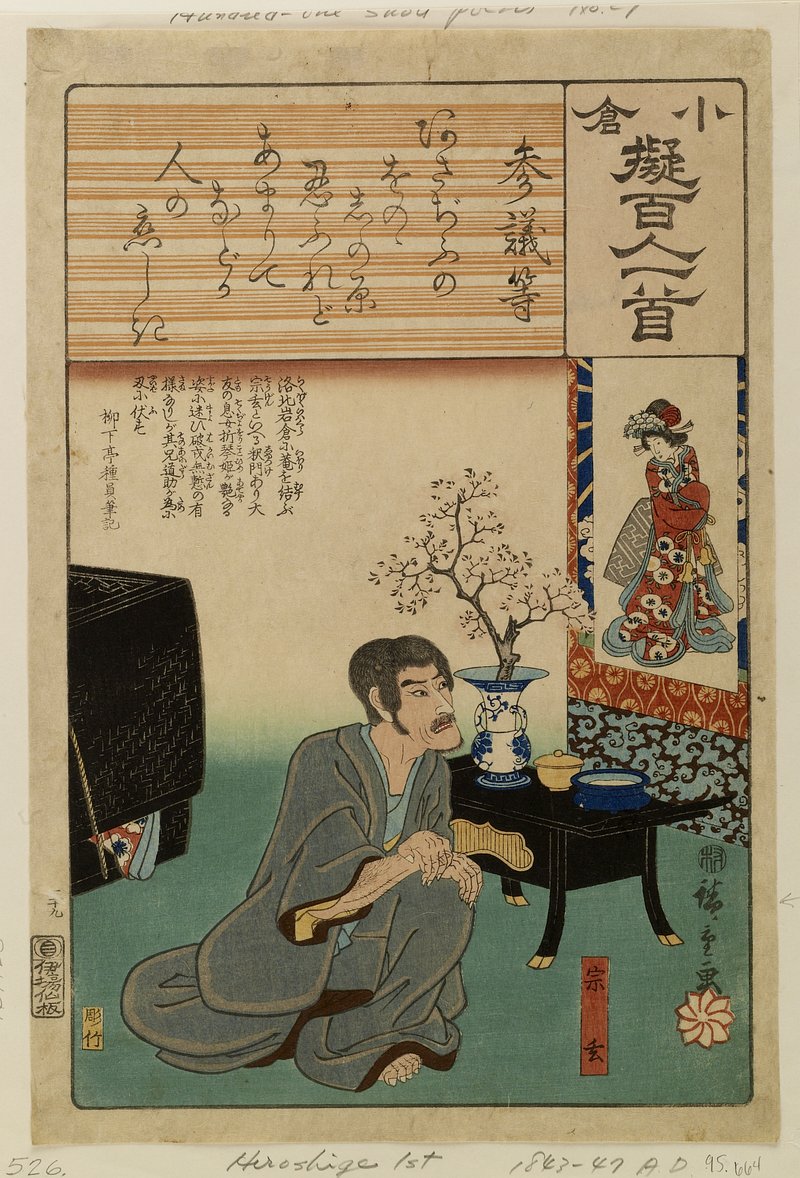 小倉
擬百人一首
参議等
あさぢふの
をのゝ
志の原
忍ふれど
あまりて
などか
人の
恋しき
洛北岩倉小菴を結ぶ
宗玄といへる釈門あり大
友の息女折琴姫が艶なる
姿に迷ひ破戒無慙の有
様なりしが其兄道助が為に
刃に伏す
柳下亭種員筆記
宗玄
廣重画
三十九
伊場仙板
彫竹
526.
Hiroshige 1st
1843-47 A.D.
95.664